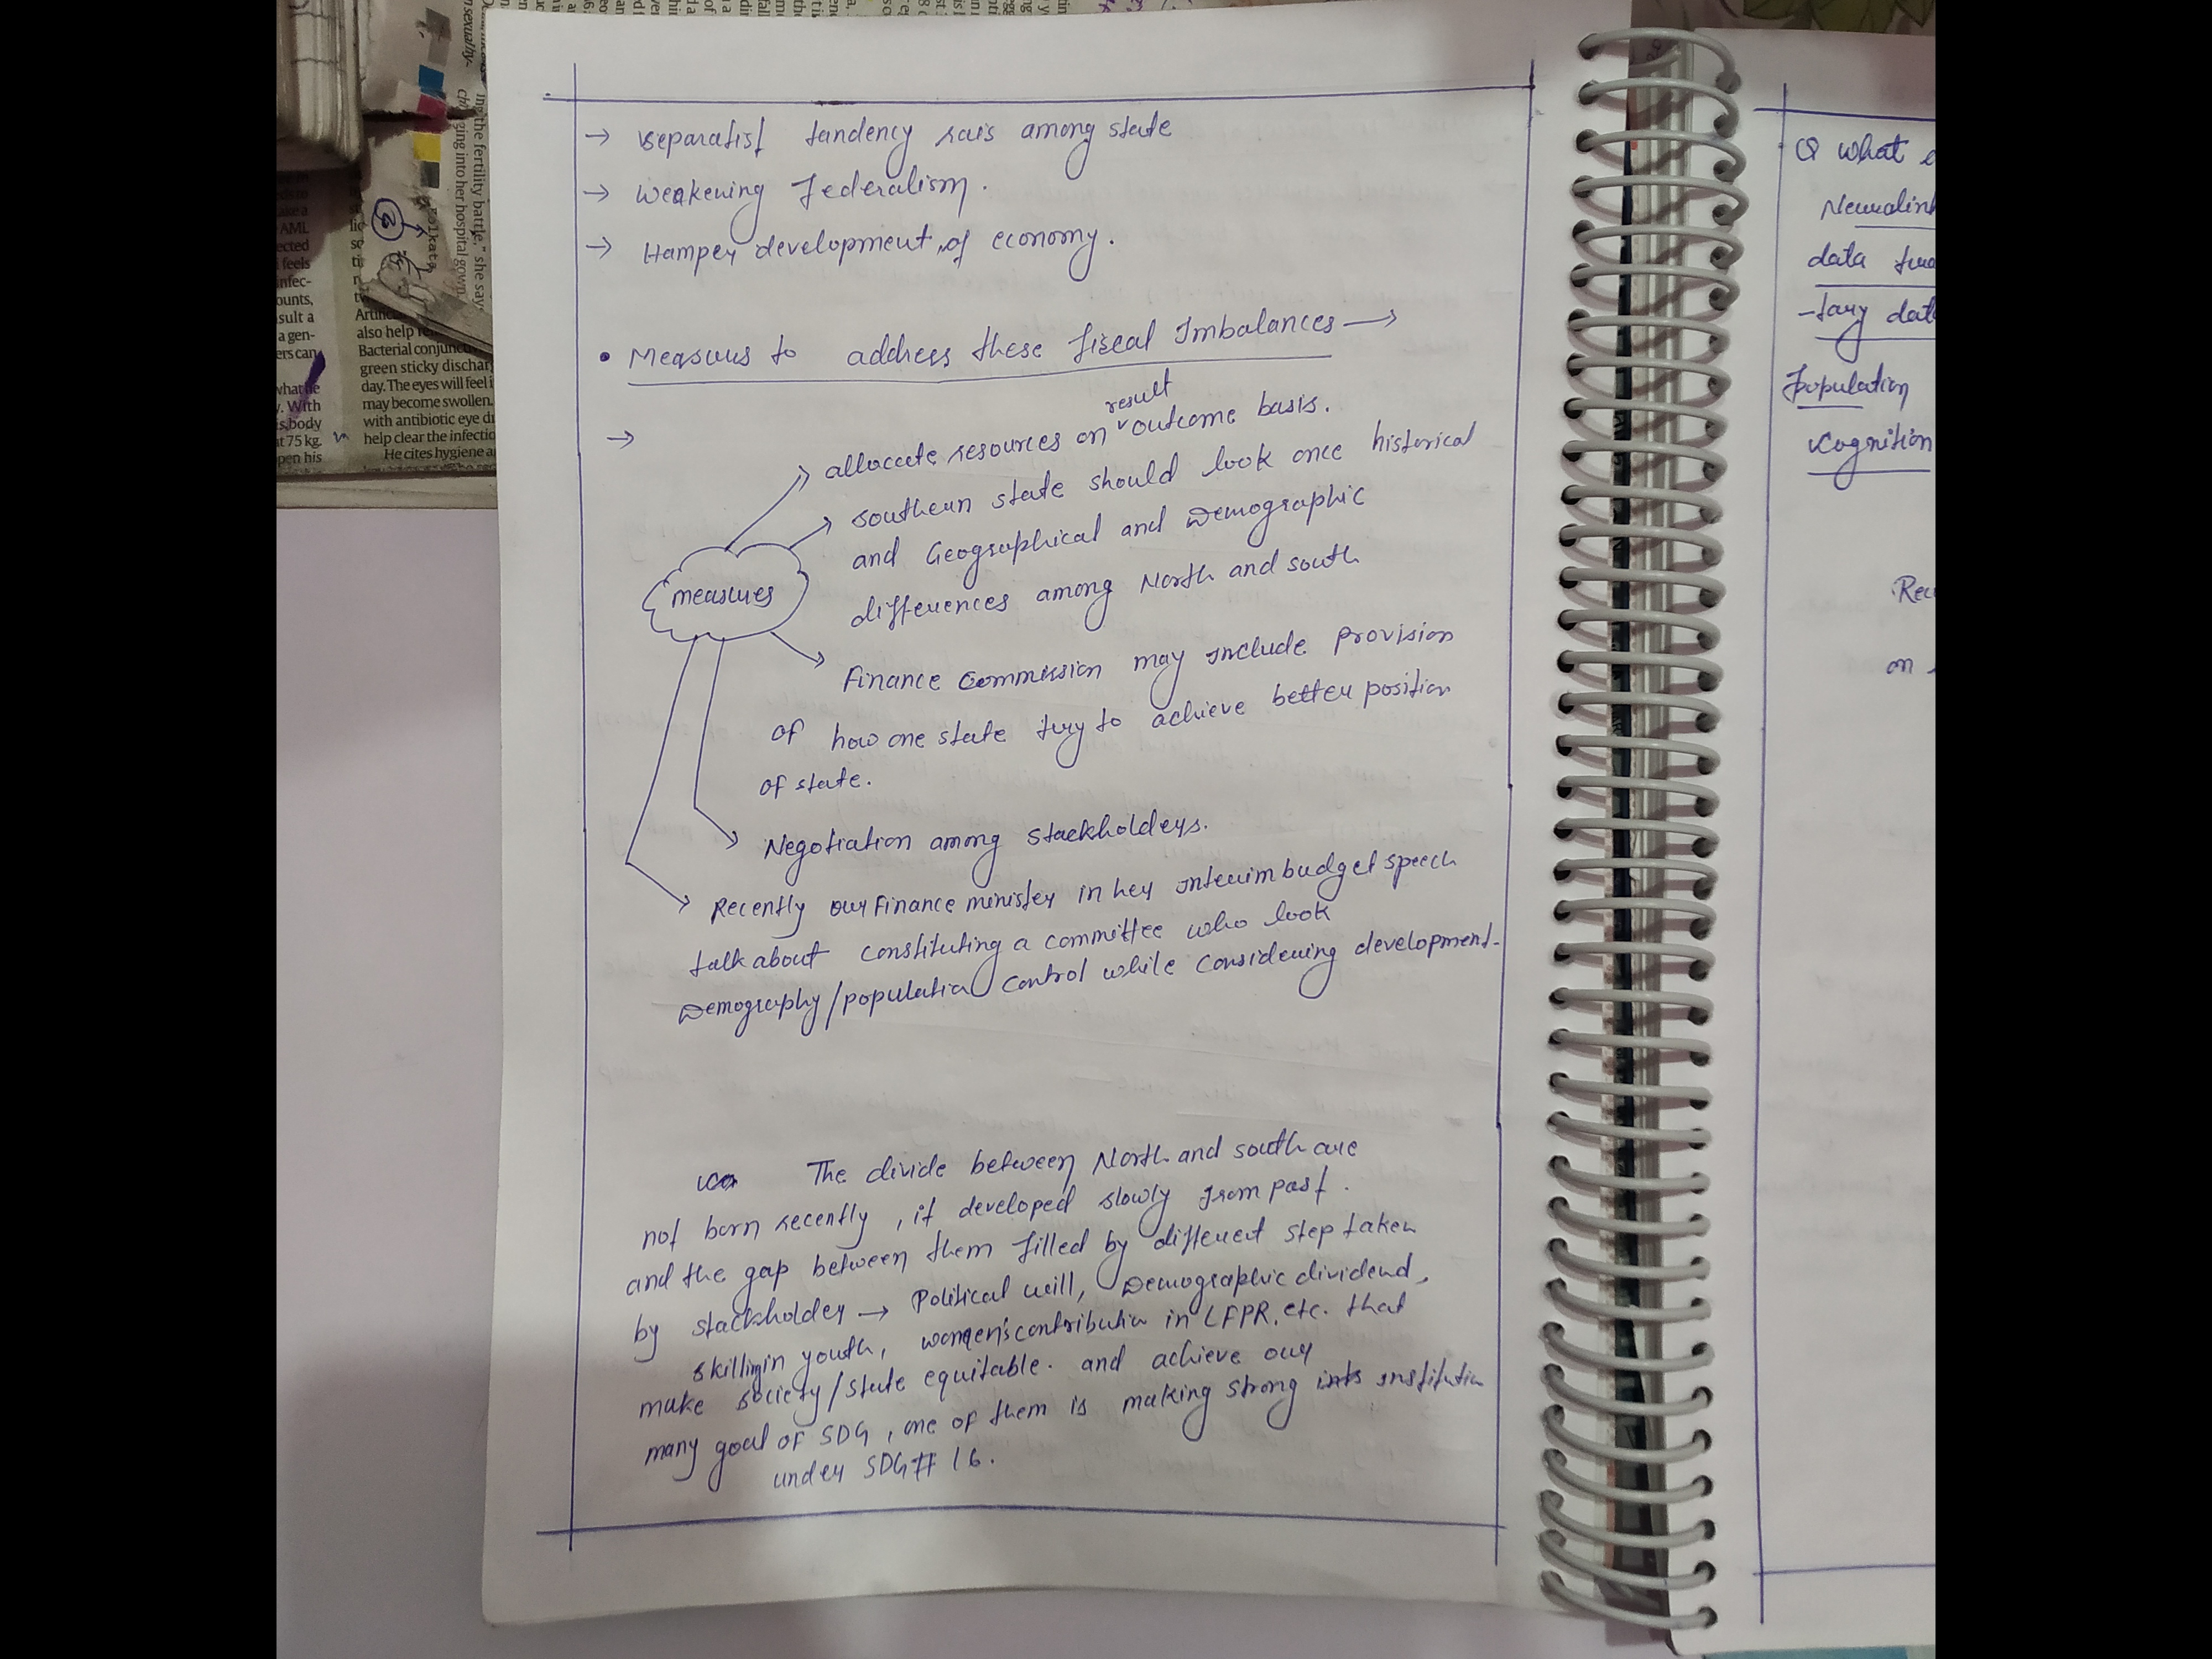 → separatist tandency rais among state
→ Weakening Federalism.
→ Hamper development of economy.
• Measures to address these fiscal Imbalances →
→
result
allocate resources on outcome basis.
southern state should look once historical
and Geographical and Demographic
differences among North and south
measures
Finance Commission may include provision
of how one state try to achieve better position
of state.
Negotiation among stackholders.
Recently our Finance minister in her interim budget speech
talk about constituting a committee who look
Demography/population control while considering development.
The divide between North and south are
not born recently, it developed slowly from past.
and the gap between them filled by different step taken
by stackholder → Political will, Demographic dividend,
skilling in youth, women's contribution in LFPR, etc. that
make society/state equitable. and achieve our
many goal of SDG, one of them is making strong institution
under SDG# 16.
Q what
Neuralink
data
-tary data
Population
Cognition
on
ing the fertility battle," she say
ging into her hospital gown
olkata
AML
ected
feels
infec-
ounts,
sult a
a gen-
ers can
With
body
at 75 kg.
pen his
also help
Bacterial
green sticky
day. The eyes will feel i
may become swollen.
with antibiotic eye
help clear the infectio
He cites hygiene a